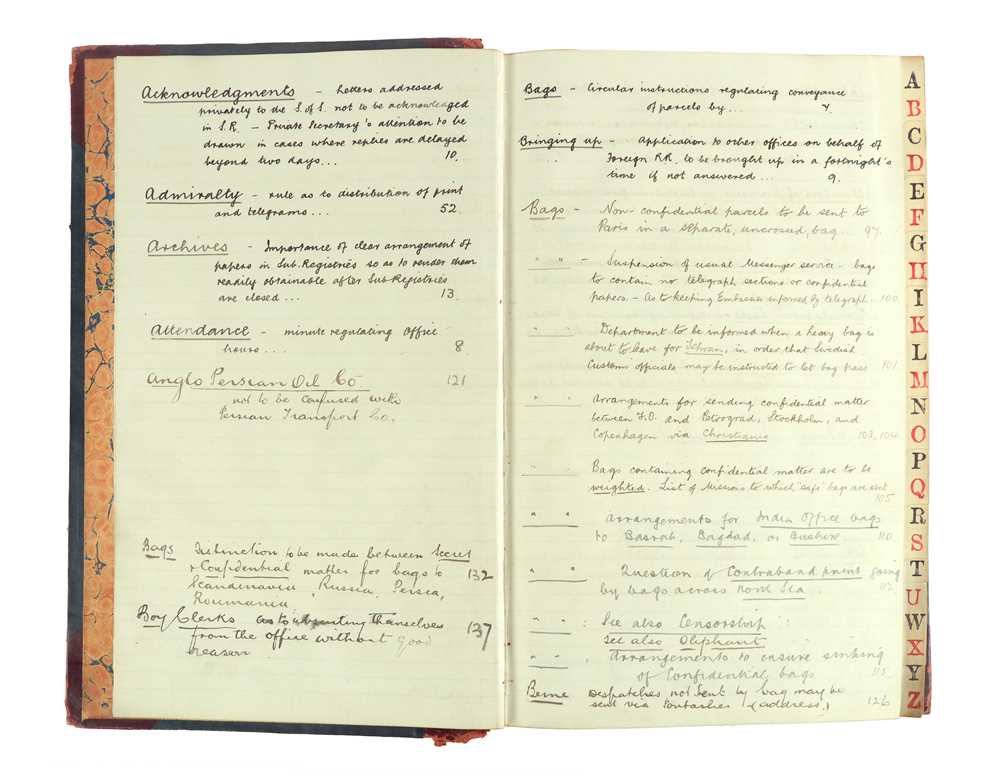 Acknowledgments - Letters addressed
privately to the S. of S. not to be acknowledged
in S.R. - Private Secretary's attention to be
drawn in cases where replies are delayed
beyond two days... 10.
Admiralty - rule as to distribution of print
and telegrams... 52.
Archives - Importance of clear arrangement of
papers in Sub. Registries so as to render them
readily obtainable after Sub Registries
are closed... 13.
Attendance - minute regulating Office
hours.... 8.
Anglo Persian Oil Co 121
not to be confused with
Persian Transport Co.
Bags Distinction to be made between Secret
& Confidential matter for bags to 132
Scandinavia, Russia, Persia,
Roumania
Boy Clerks as to absenting themselves 137
from the office without good
reason
Bags - Circular instructions regulating conveyance
of parcels by... 7.
Bringing up - Application to other offices on behalf of
Foreign RR. to be brought up in a fortnight's
time if not answered... 9.
Bags - Non-confidential parcels to be sent to
Paris in a separate, uncrossed, bag... 97.
" " - Suspension of usual Messenger service - bags
to contain no telegraph sections or confidential
papers. - As to keeping Embassies informed by telegraph.. 100
" " Department to be informed when a heavy bag is
about to leave for Tehran, in order that Swedish
Customs officials may be instructed to let bag pass 101
" " Arrangements for sending confidential matter
between F.O. and Petrograd, Stockholm, and
Copenhagen via Christiania 103, 104
" " Bags containing confidential matter are to be
weighted. List of Missions to which "safe" bags are sent
105
" " arrangements for India Office bags
to Basrah, Bagdad, or Bushire. 110
" " Question of Contraband print going
by bags across North Sea
" " : See also Censorship
See also Oliphant
" " . arrangements to ensure sinking
of Confidential bags 115
Berne Despatches not sent by bag may be
sent via Pontarlier (address.) 126
A
B
C
D
E
F
G
H
I
K
L
M
N
O
P
Q
R
S
T
U
W
X
Y
Z